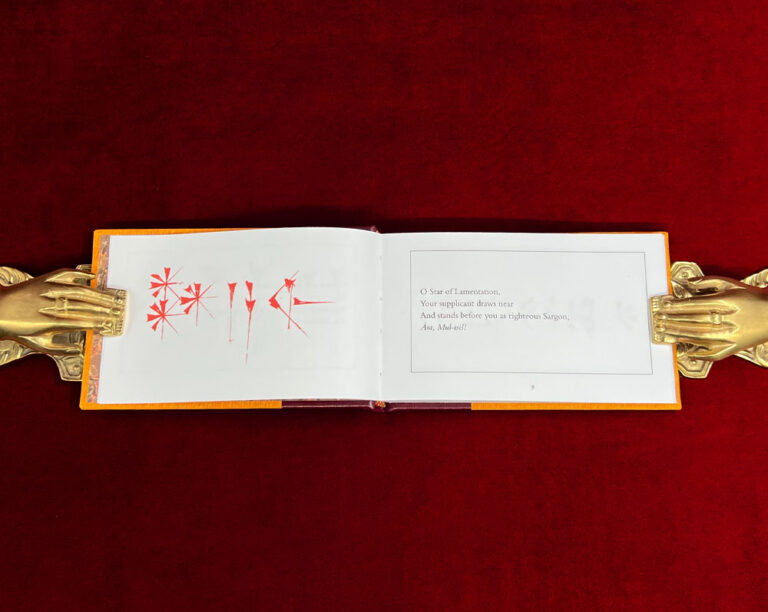 𒀯𒀀𒅆
O Star of Lamentation,
Your supplicant draws near
And stands before you as righteous Sargon;
Mul-isiš!